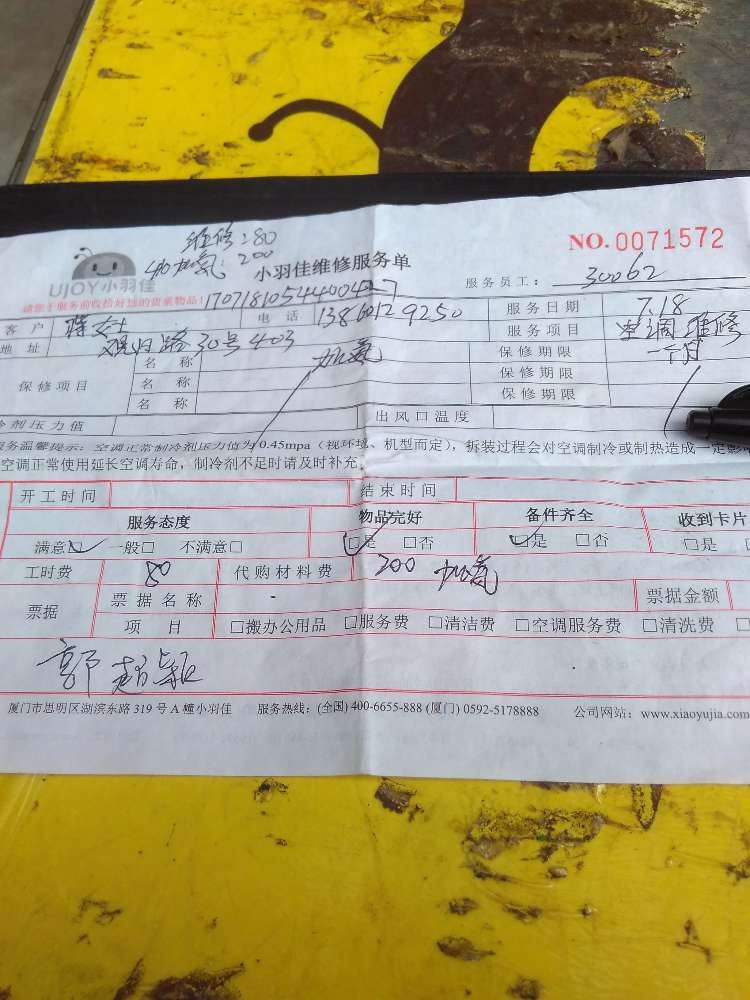 维修:80
加氟:200
NO.0071572
UJOY小羽佳
小羽佳维修服务单
服务员工: 30062
请您于服务前收拾好您的贵重物品!
客户 电话 13860129250 服务日期 7.18
地址 观归路30号403 服务项目 空调维修
保修项目 名称 加氟 保修期限 一个月
名称 保修期限
名称 保修期限
冷剂压力值 出风口温度
服务温馨提示:空调正常制冷剂压力值为0.45mpa(视环境、机型而定),拆装过程会对空调制冷或制热造成一定影
空调正常使用延长空调寿命,制冷剂不足时请及时补充。
开工时间 结束时间
服务态度 物品完好 备件齐全 收到卡片
满意☑ 一般□ 不满意□ ☑是 □否 ☑是 □否 □是
工时费 80 代购材料费 200 加氟
票据 票据名称 票据金额
项目 □搬办公用品 □服务费 □清洁费 □空调服务费 □清洗费
郭超颖
厦门市思明区湖滨东路319号A幢小羽佳 服务热线:(全国)400-6655-888 (厦门)0592-5178888 公司网站:www.xiaoyujia.com